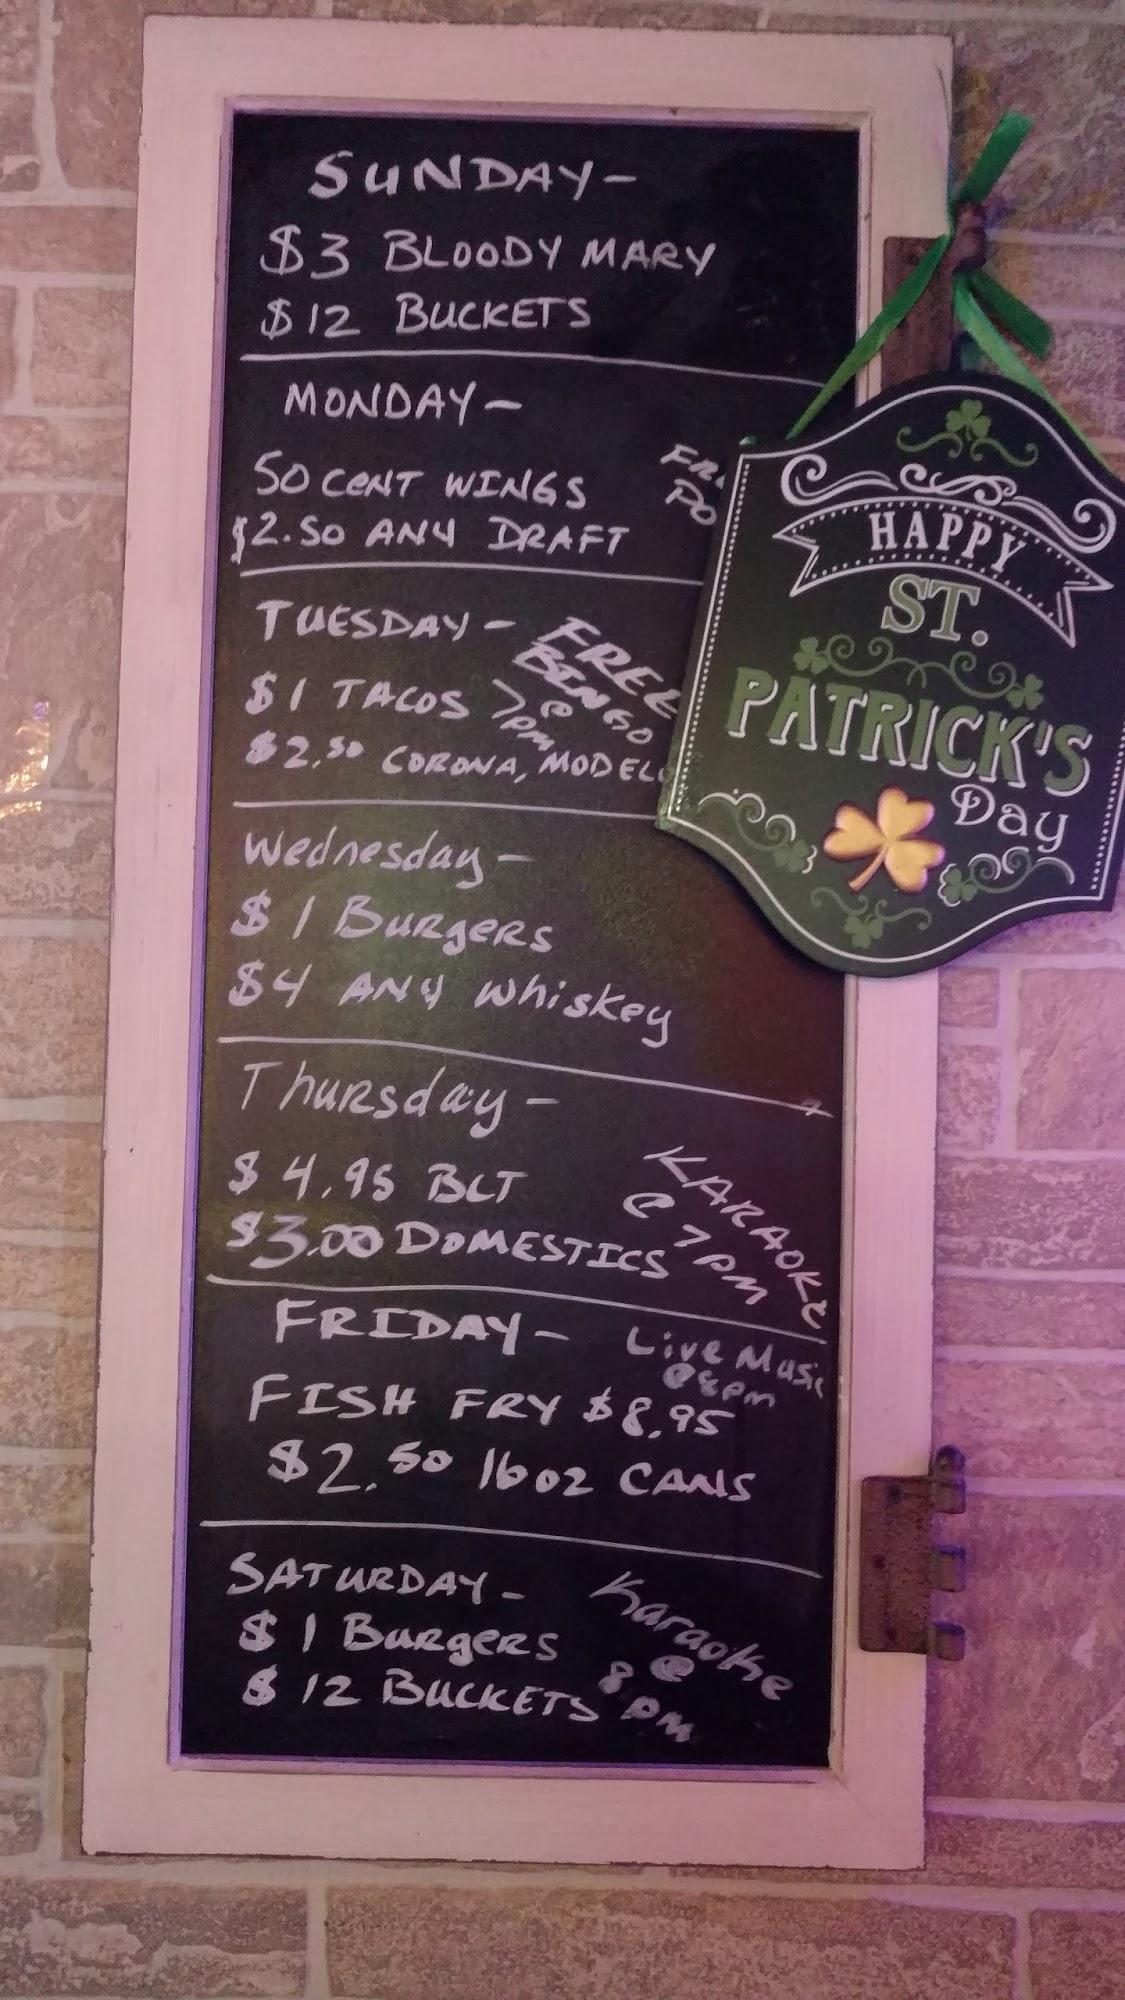 SUNDAY-
$3 BLOODY MARY
$12 BUCKETS
MONDAY-
50 CENT WINGS
$2.50 ANY DRAFT
TUESDAY-
FREE
BINGO
@
7PM
$1 TACOS
$2.50 CORONA, MODELO
Wednesday-
$1 Burgers
$4 ANY whiskey
Thursday-
$4.95 BLT
$3.00 DOMESTICS
KARAOKE
@ 7PM
FRIDAY-
Live Music
@8pm
FISH FRY $8.95
$2.50 16oz CANS
SATURDAY-
$1 Burgers
$12 BUCKETS
Karaoke
@
8pm
HAPPY
ST.
PATRICK'S
Day